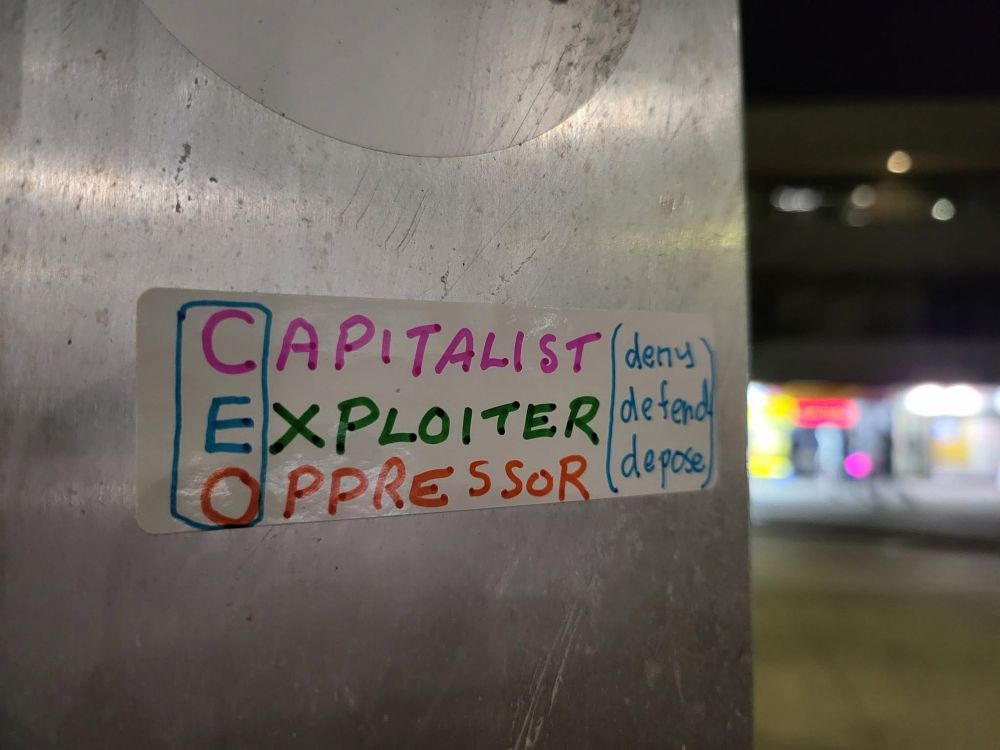 CAPITALIST (deny
EXPLOITER defend
OPPRESSOR depose)